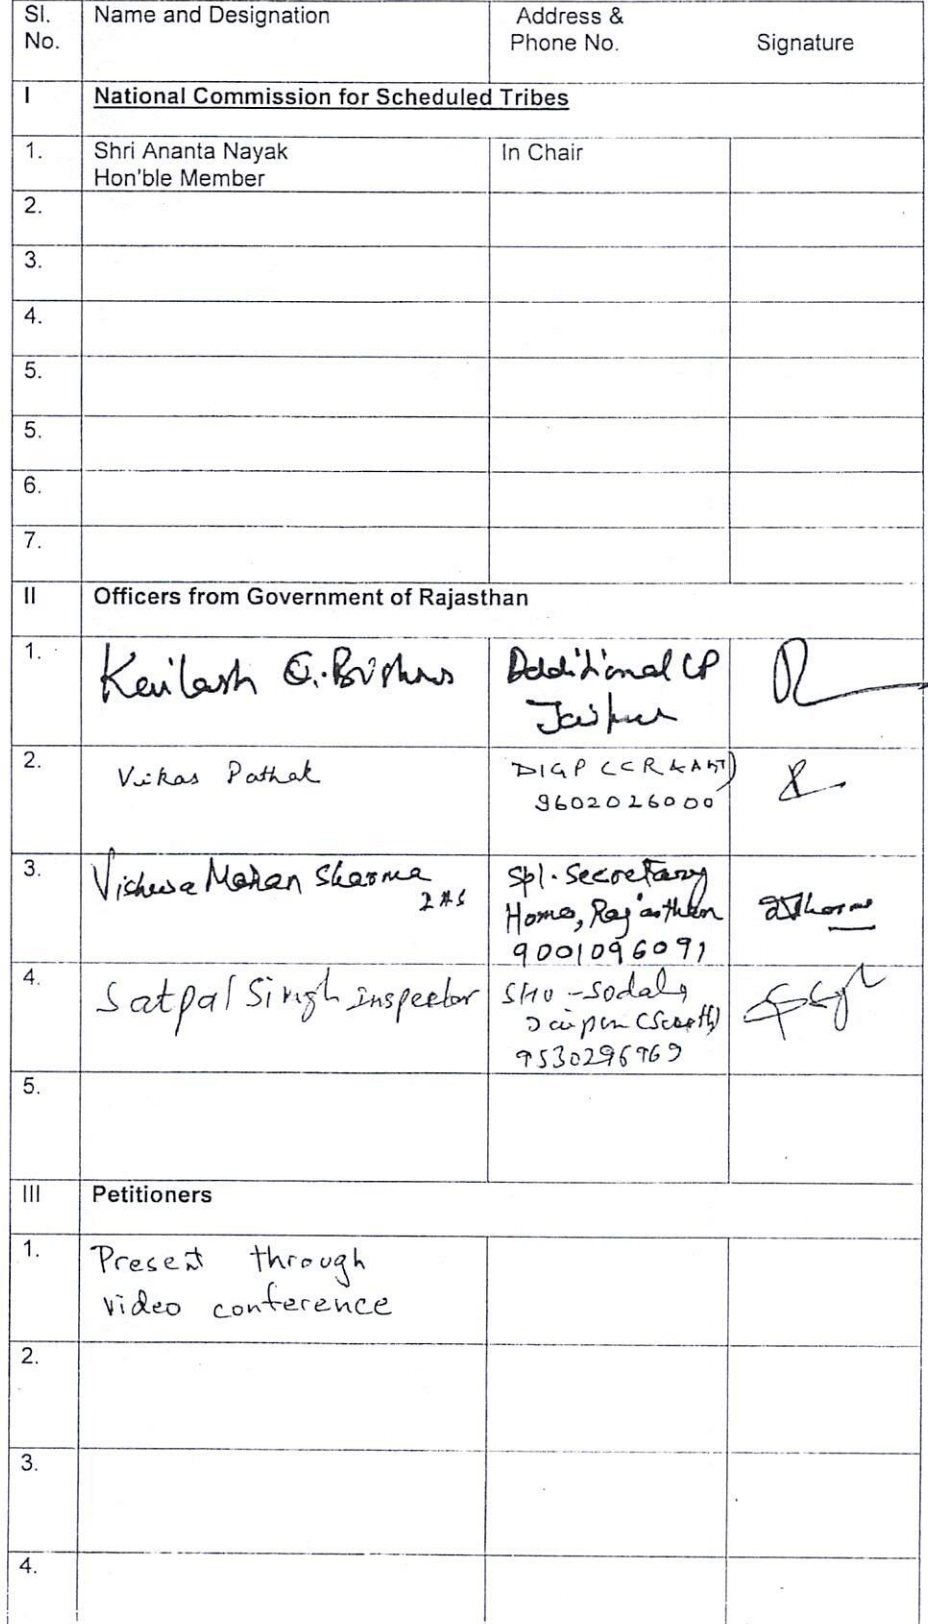 Sl. No. Name and Designation Address & Phone No. Signature
I National Commission for Scheduled Tribes
1. Shri Ananta Nayak In Chair
Hon'ble Member
2.
3.
4.
5.
5.
6.
7.
II Officers from Government of Rajasthan
1. Kailash Additional CP
Jaipur
2. Vikas Pathak DIGP
9602026000
3. Vishwa Mohan Sharma Spl. Secretary
Home, Rajasthan
9001096091
4. Satpal Singh Inspector SHO - Sodala
Jaipur (South)
5.
III Petitioners
1. Present through
video conference
2.
3.
4.